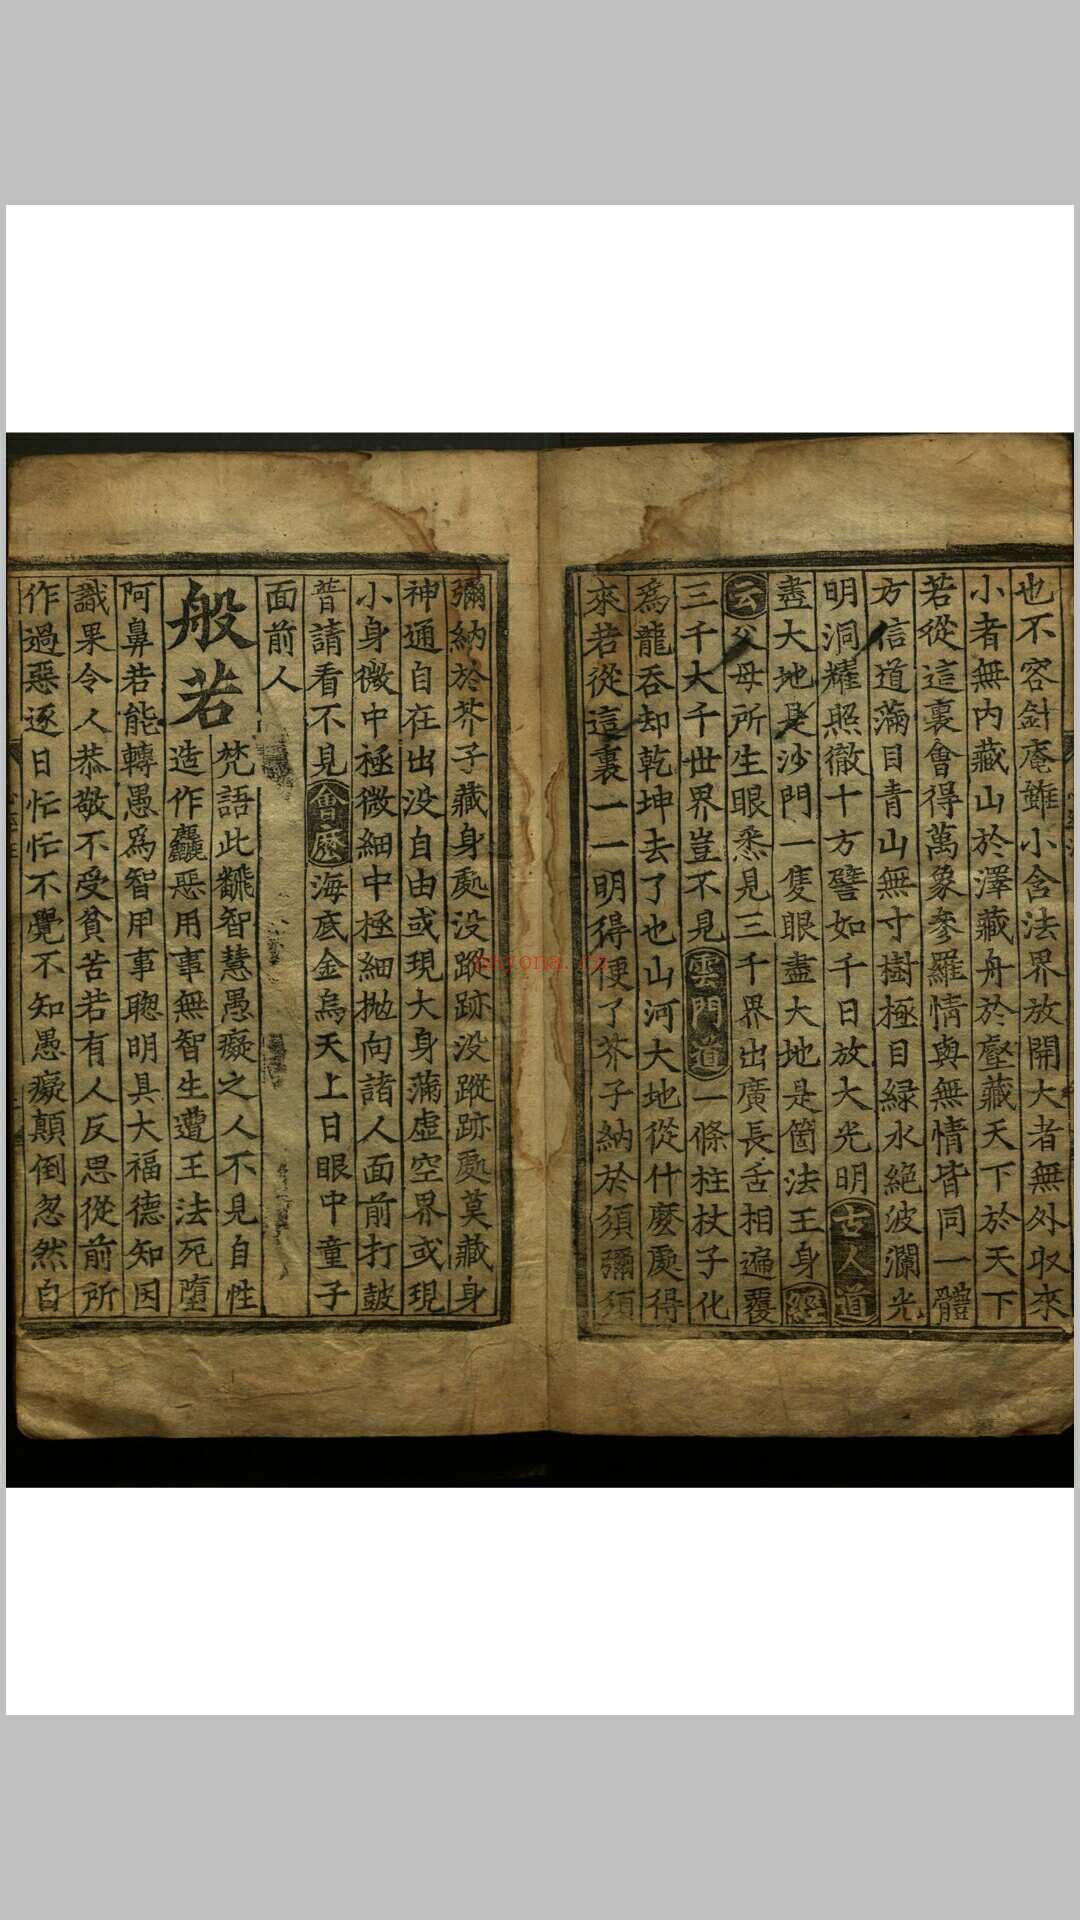 也不容針庵雖小含法界放開大者無外収來
小者無內藏山於澤藏舟於壑藏天下於天下
若從這裏會得萬象參羅情與無情皆同一體
方信道滿目青山無寸樹極目緑水絶波瀾光
明洞耀照徹十方譬如千日放大光明古人道
盡大地是沙門一隻眼盡大地是箇法王身經
云父母所生眼悉見三千界出廣長舌相遍覆
三千大千世界豈不見雲門道一條柱杖子化
爲龍吞却乾坤去了也山河大地從什麽處得
來若從這裏一一明得便了芥子納於須彌須
彌納於芥子藏身處没蹤跡没蹤跡處莫藏身
神通自在出没自由或現大身滿虛空界或現
小身微中極微細中極細拋向諸人面前打鼓
普請看不見會麽海底金烏天上日眼中童子
面前人
般若
梵語此翻智慧愚癡之人不見自性
造作麤惡用事無智生遭王法死墮
阿鼻若能轉愚爲智用事聰明具大福德知因
識果令人恭敬不受貧苦若有人反思從前所
作過惡逐日忙忙不覺不知愚癡顛倒忽然自